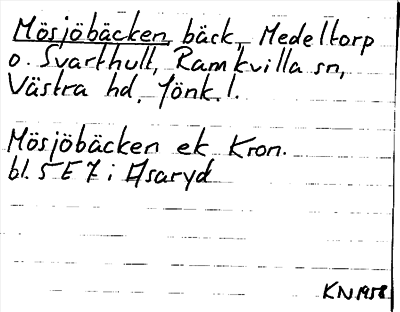 Mösjöbäcken, bäck, Medeltorp
o. Svarthult, Ramkvilla sn,
Västra hd, Jönk. l.
Mösjöbäcken ek Kron.
bl. 5 E 7 i Asaryd
KN 1958